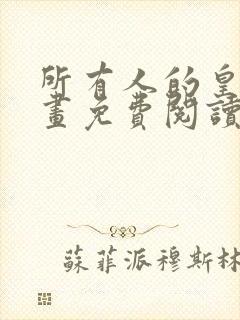 所有人的皇
畫免費閱讀
蘇菲派穆斯林